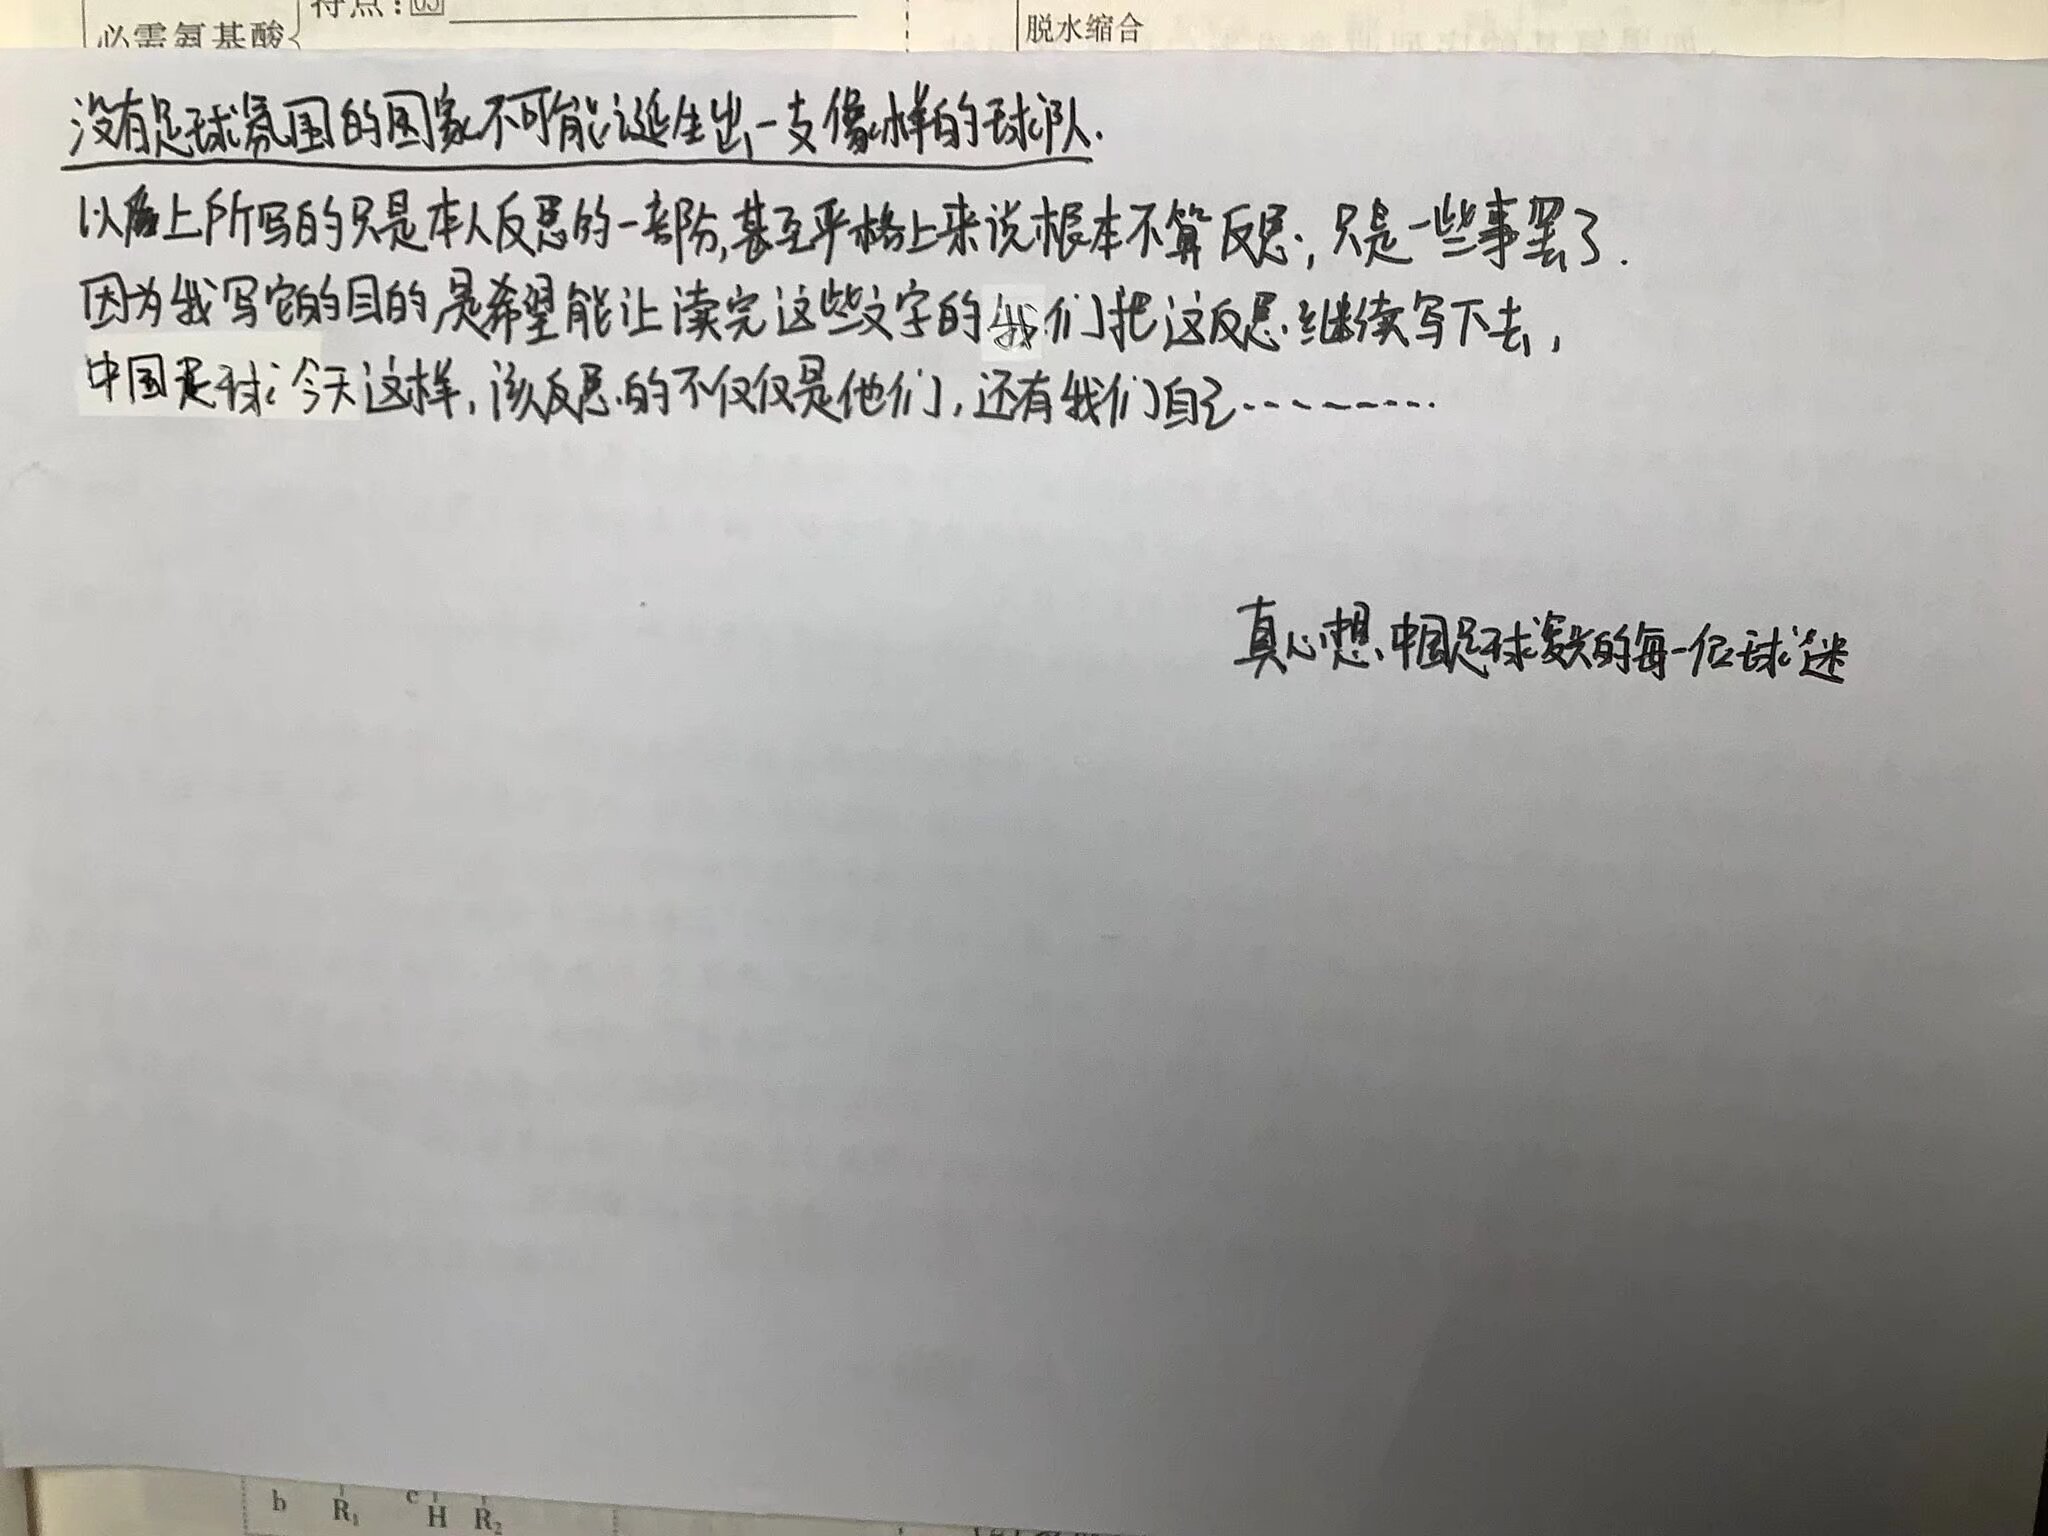 特点：03
必需氨基酸
脱水缩合
没有足球氛围的国家不可能诞生出一支像样的球队.
以上所写的只是本人反思的一部份,甚至严格上来说根本不算反思，只是一些事罢了.
因为我写它的目的是希望能让读完这些文字的我们把这反思继续写下去，
中国足球今天这样，该反思的不仅仅是他们，还有我们自己………
真心想中国足球变好的每一位球迷
b R₁ c H R₂